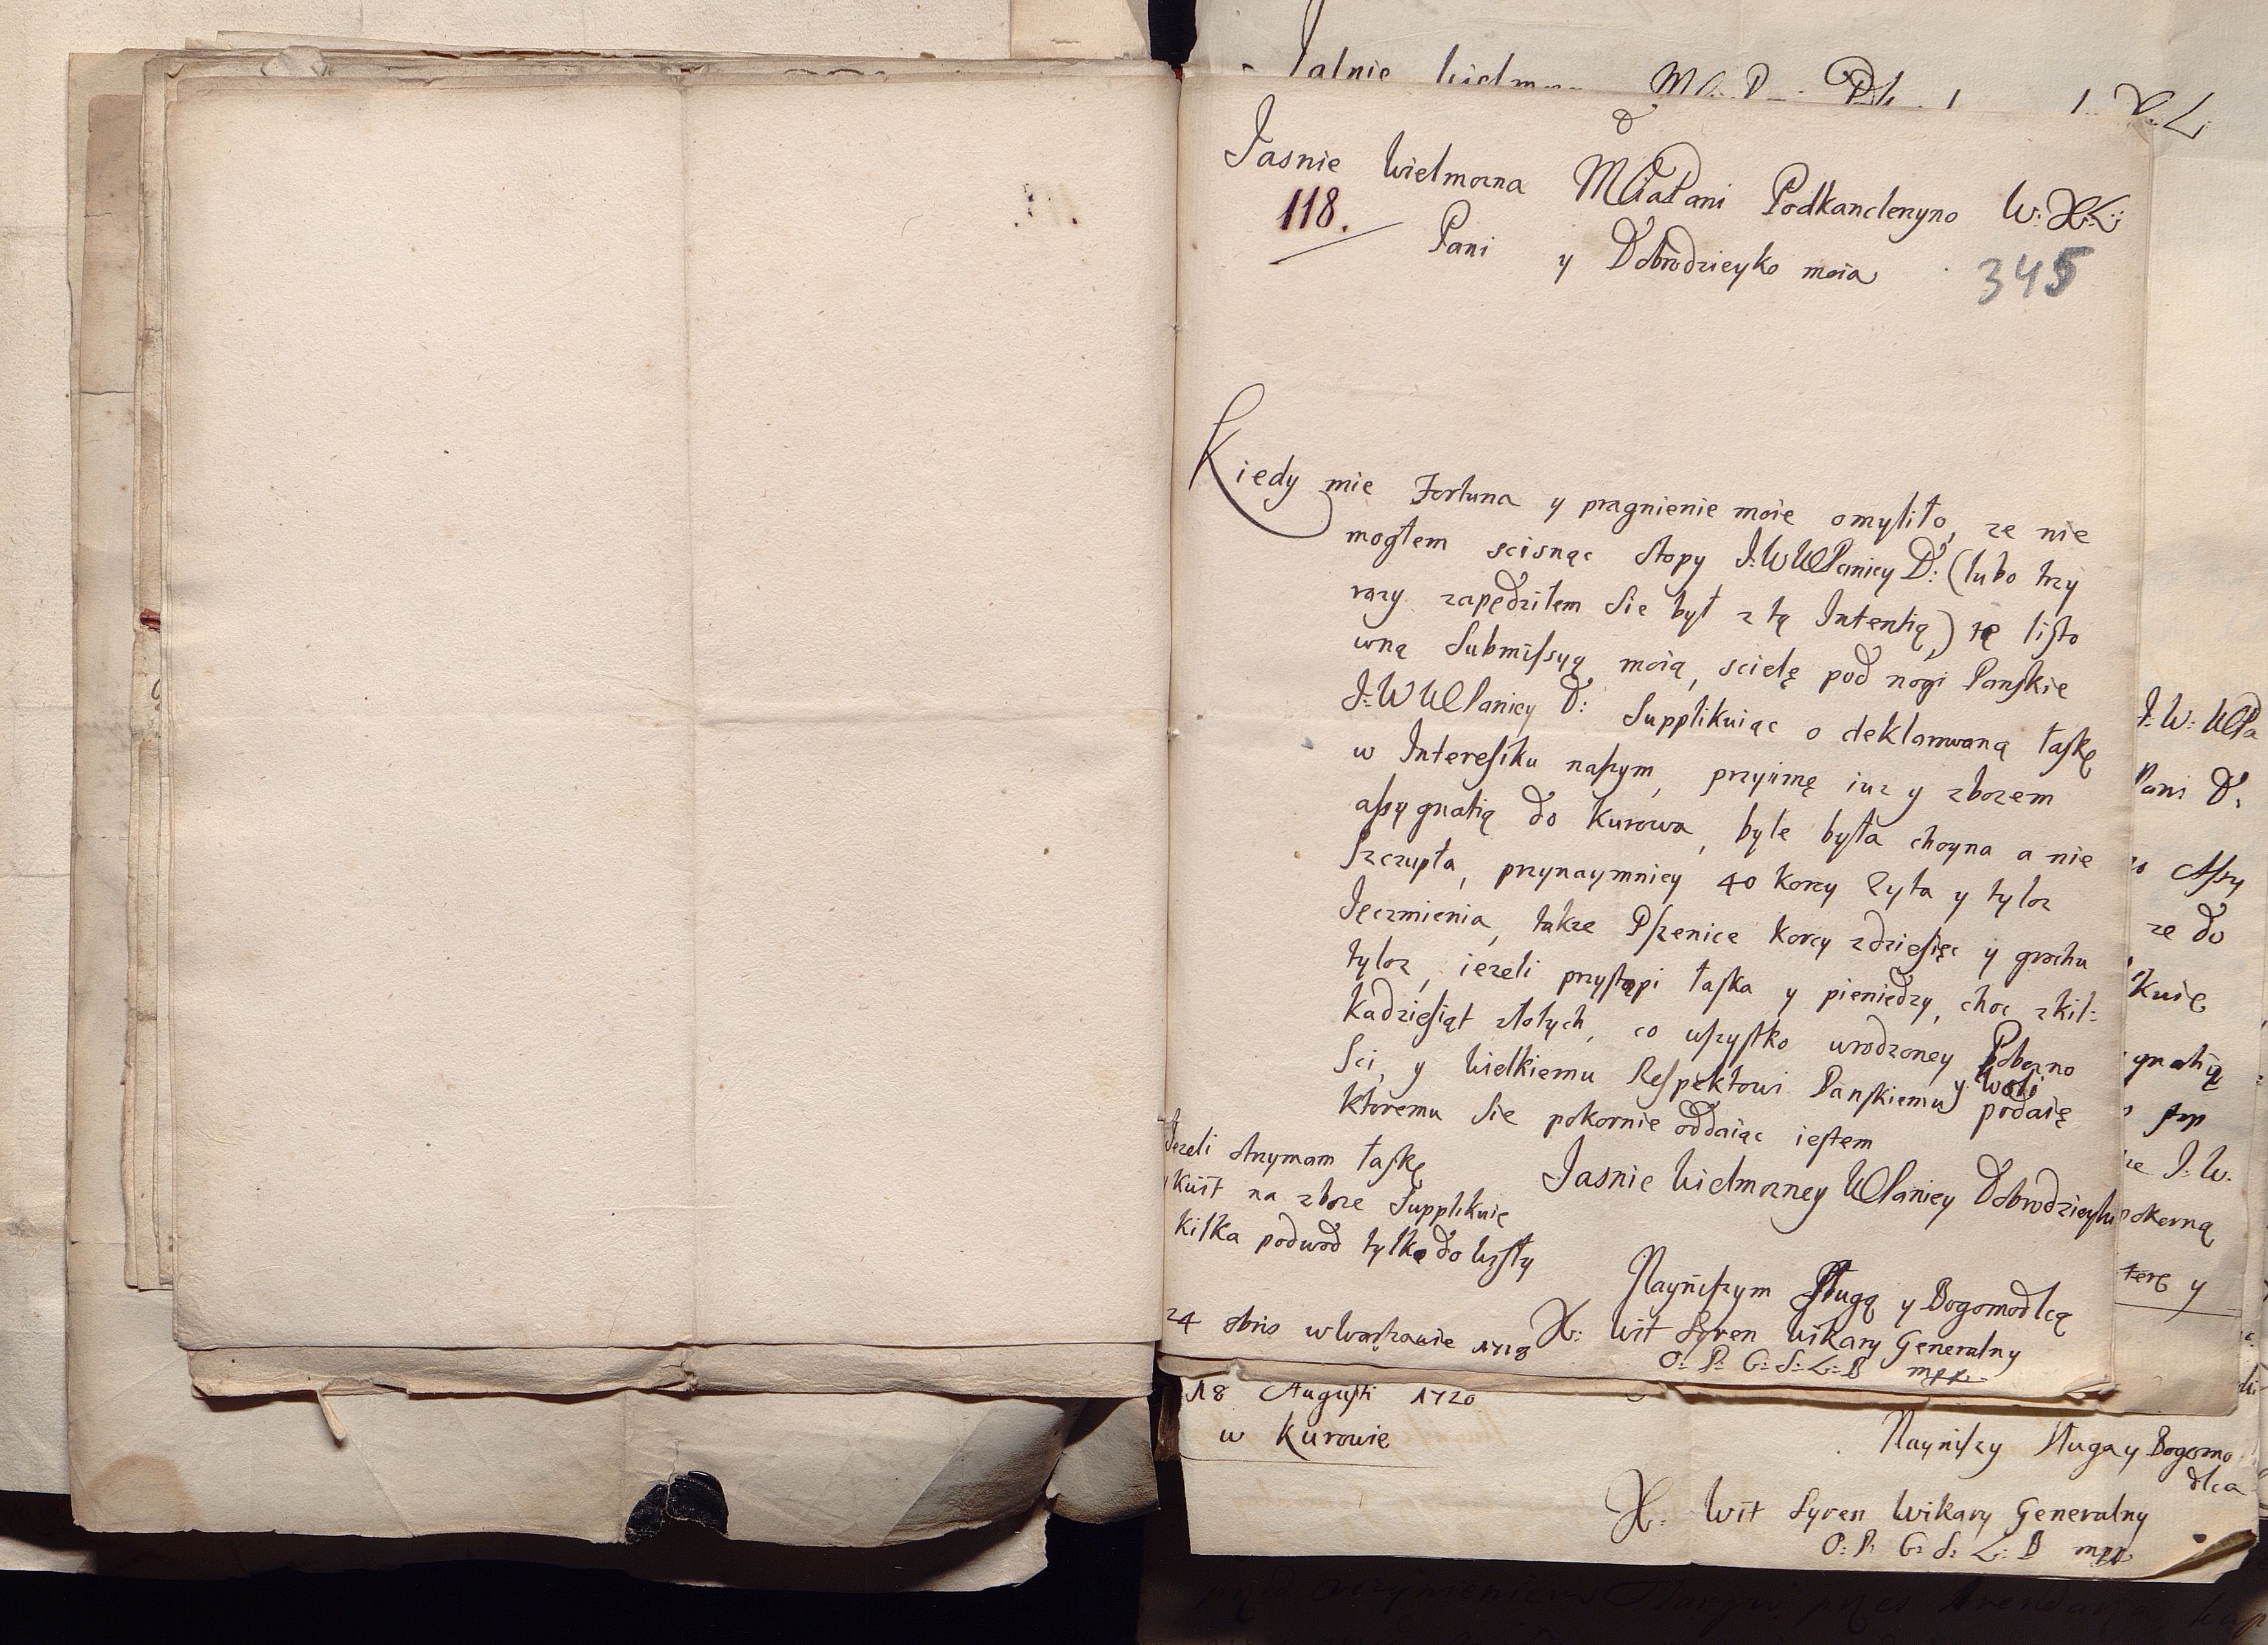 Jasnie Wielmozna MCia Pani Podkancleryno W: X: L:
118.
Pani y Dobrodzieyko moia
345
Kiedy mie Fortuna y pragnienie moie omyliło, ze nie
mogłem scisnąc stopy J: W WMPaniey D: (lubo trzy
razy zapędziłem sie był z tą Intentią,) tę listo
wną Submissyą moią, scielę pod nogi Panskie
J: W WMPaniey D: Supplikuiąc o deklarowaną łaskę
w Interesiku naszym, przyimę iuz y zbozem
assygnatią do Kurowa, byle była choyna a nie
Szczupła, przynaymniey 40 korcy Zyta y tyloz
Jęczmienia, takze Pszenice korcy zdziesięc y grochu
tyloz, iezeli przystąpi łaska y pieniedzy, choc zkil=
kadziesiąt złotych, co wszystko urodzoney Pobozno
Sci, y Wielkiemu Respektowi Panskiemu y woli podaię
ktoremu sie pokornie oddaiąc iestem
Jezeli otrzymam łaskę
na zboze Supplikuię
kilka podwod tylko do Wisły
Jasnie Wielmozney WMPaniey Dobrodzieyki
Nayniszym Sługą y Bogomodlcą
24 obris w Warszawie 1718
X: Wit Syren Wikary Generalny
O: P: G: S: L: B mpp
18 Augusti 1720
w Kurowie
Nayniszy Sługa y Bogomo
dlca
X: Wit Syren Wikary Generalny
O: P: G: S: L: B mpp
J: W: WMPa
Pani D:
Assy
ze do
kuię
gnatią
J: W.
pokorną